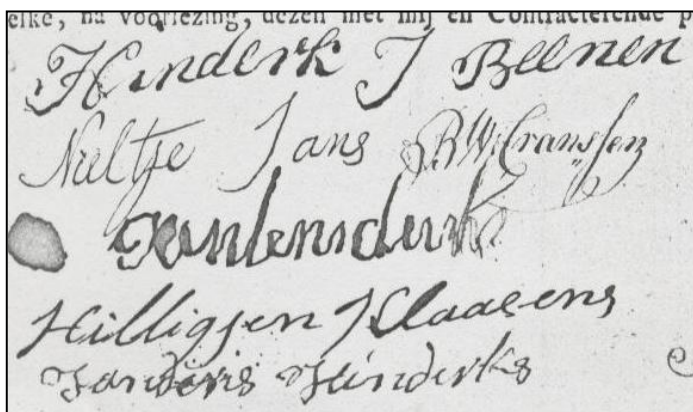 elke, na voorlezing, dezen met mij en Contracterende p
Hinderk J Beenen
Nieltje Jans B W Cranssen
Hilligjen Klaasens
Hinderks